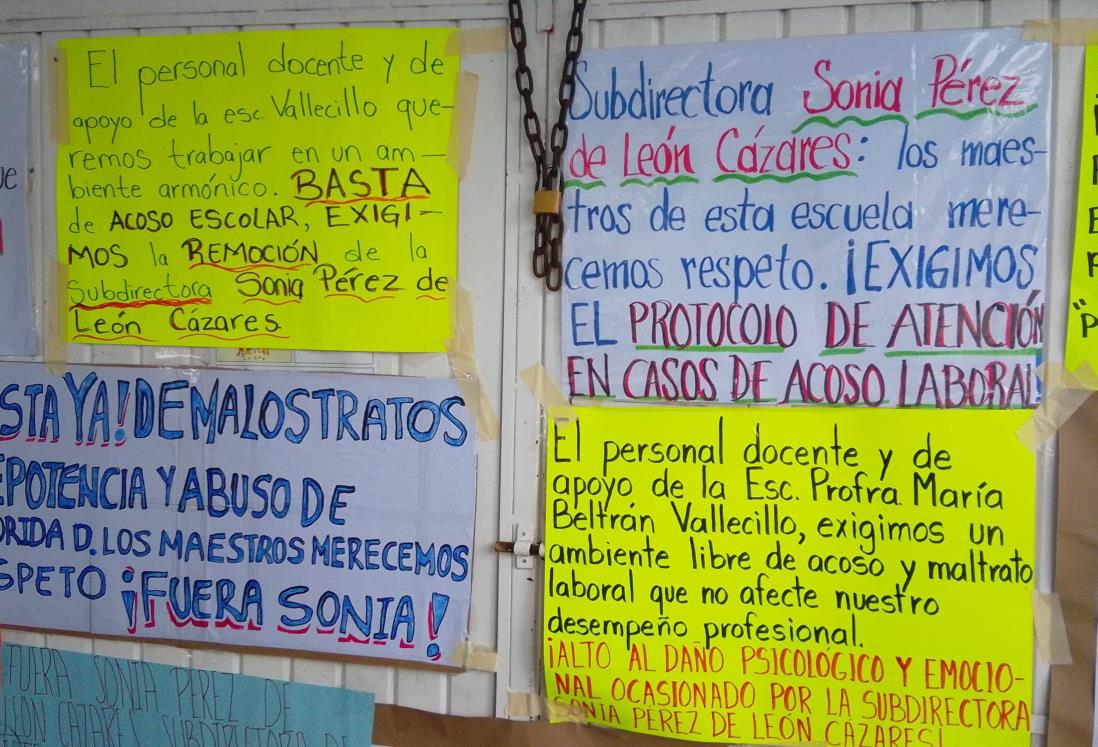 El personal docente y de
apoyo de la esc. Vallecillo que-
remos trabajar en un am-
biente armónico. BASTA
de ACOSO ESCOLAR, EXIGI-
MOS la REMOCIÓN de la
Subdirectora Sonia Pérez de
León Cázares.
Subdirectora Sonia Pérez
de León Cázares: los maes-
tros de esta escuela mere-
cemos respeto. ¡EXIGIMOS
EL PROTOCOLO DE ATENCIÓN
EN CASOS DE ACOSO LABORAL!
STA YA! DE MALOSTRATOS
EPOTENCIA Y ABUSO DE
ORIDAD. LOS MAESTROS MERECEMOS
SPETO ¡FUERA SONIA!
El personal docente y de
apoyo de la Esc. Profra. María
Beltrán Vallecillo, exigimos un
ambiente libre de acoso y maltrato
laboral que no afecte nuestro
desempeño profesional.
¡ALTO AL DAÑO PSICOLÓGICO Y EMOCIO-
NAL OCASIONADO POR LA SUBDIRECTORA
SONIA PÉREZ DE LEÓN CÁZARES!
FUERA SONIA PEREZ DE
LEON CAZARES SUBDIRECTORA DE